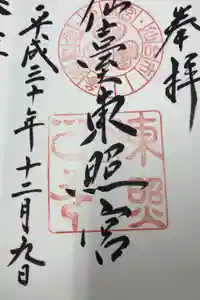 奉拝
仙臺東照宮
平成三十年十二月九日
東照